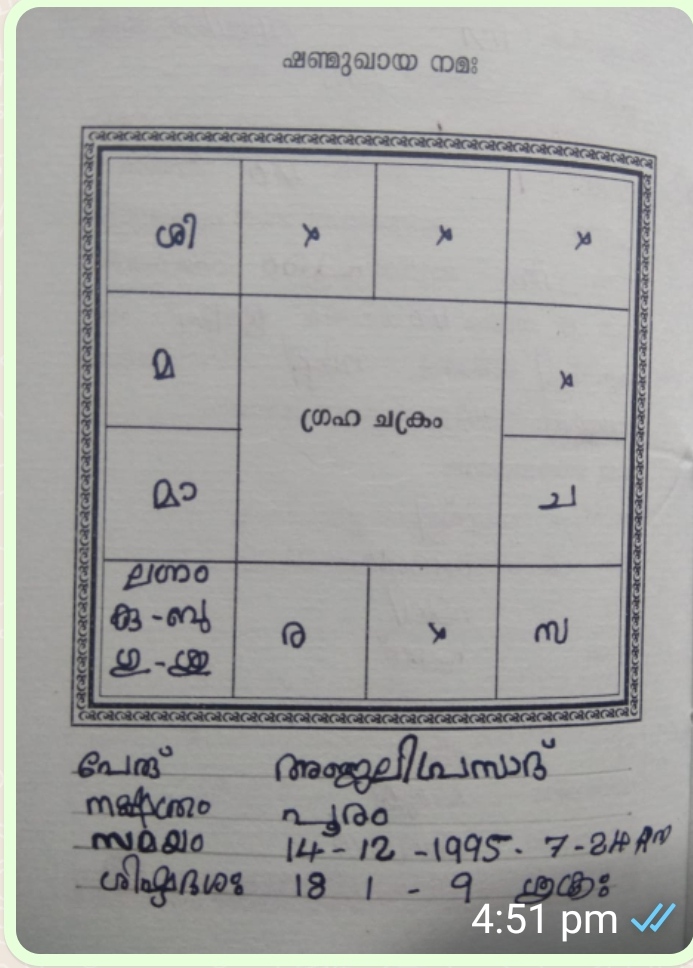 ഷണ്മുഖായ നമഃ
ശി x x x
മ x
ഗ്രഹ ചക്രം
മാ ച
ലഗ്നം
കു - ബു ര x സ
ഗു - ശു
പേര് അഞ്ജലിപ്രസാദ്
നക്ഷത്രം പൂരം
സമയം 14 - 12 - 1995 - 7-24 AM
ശിഷ്ടദശഃ 18 1 - 9 ശുക്രഃ
4:51 pm